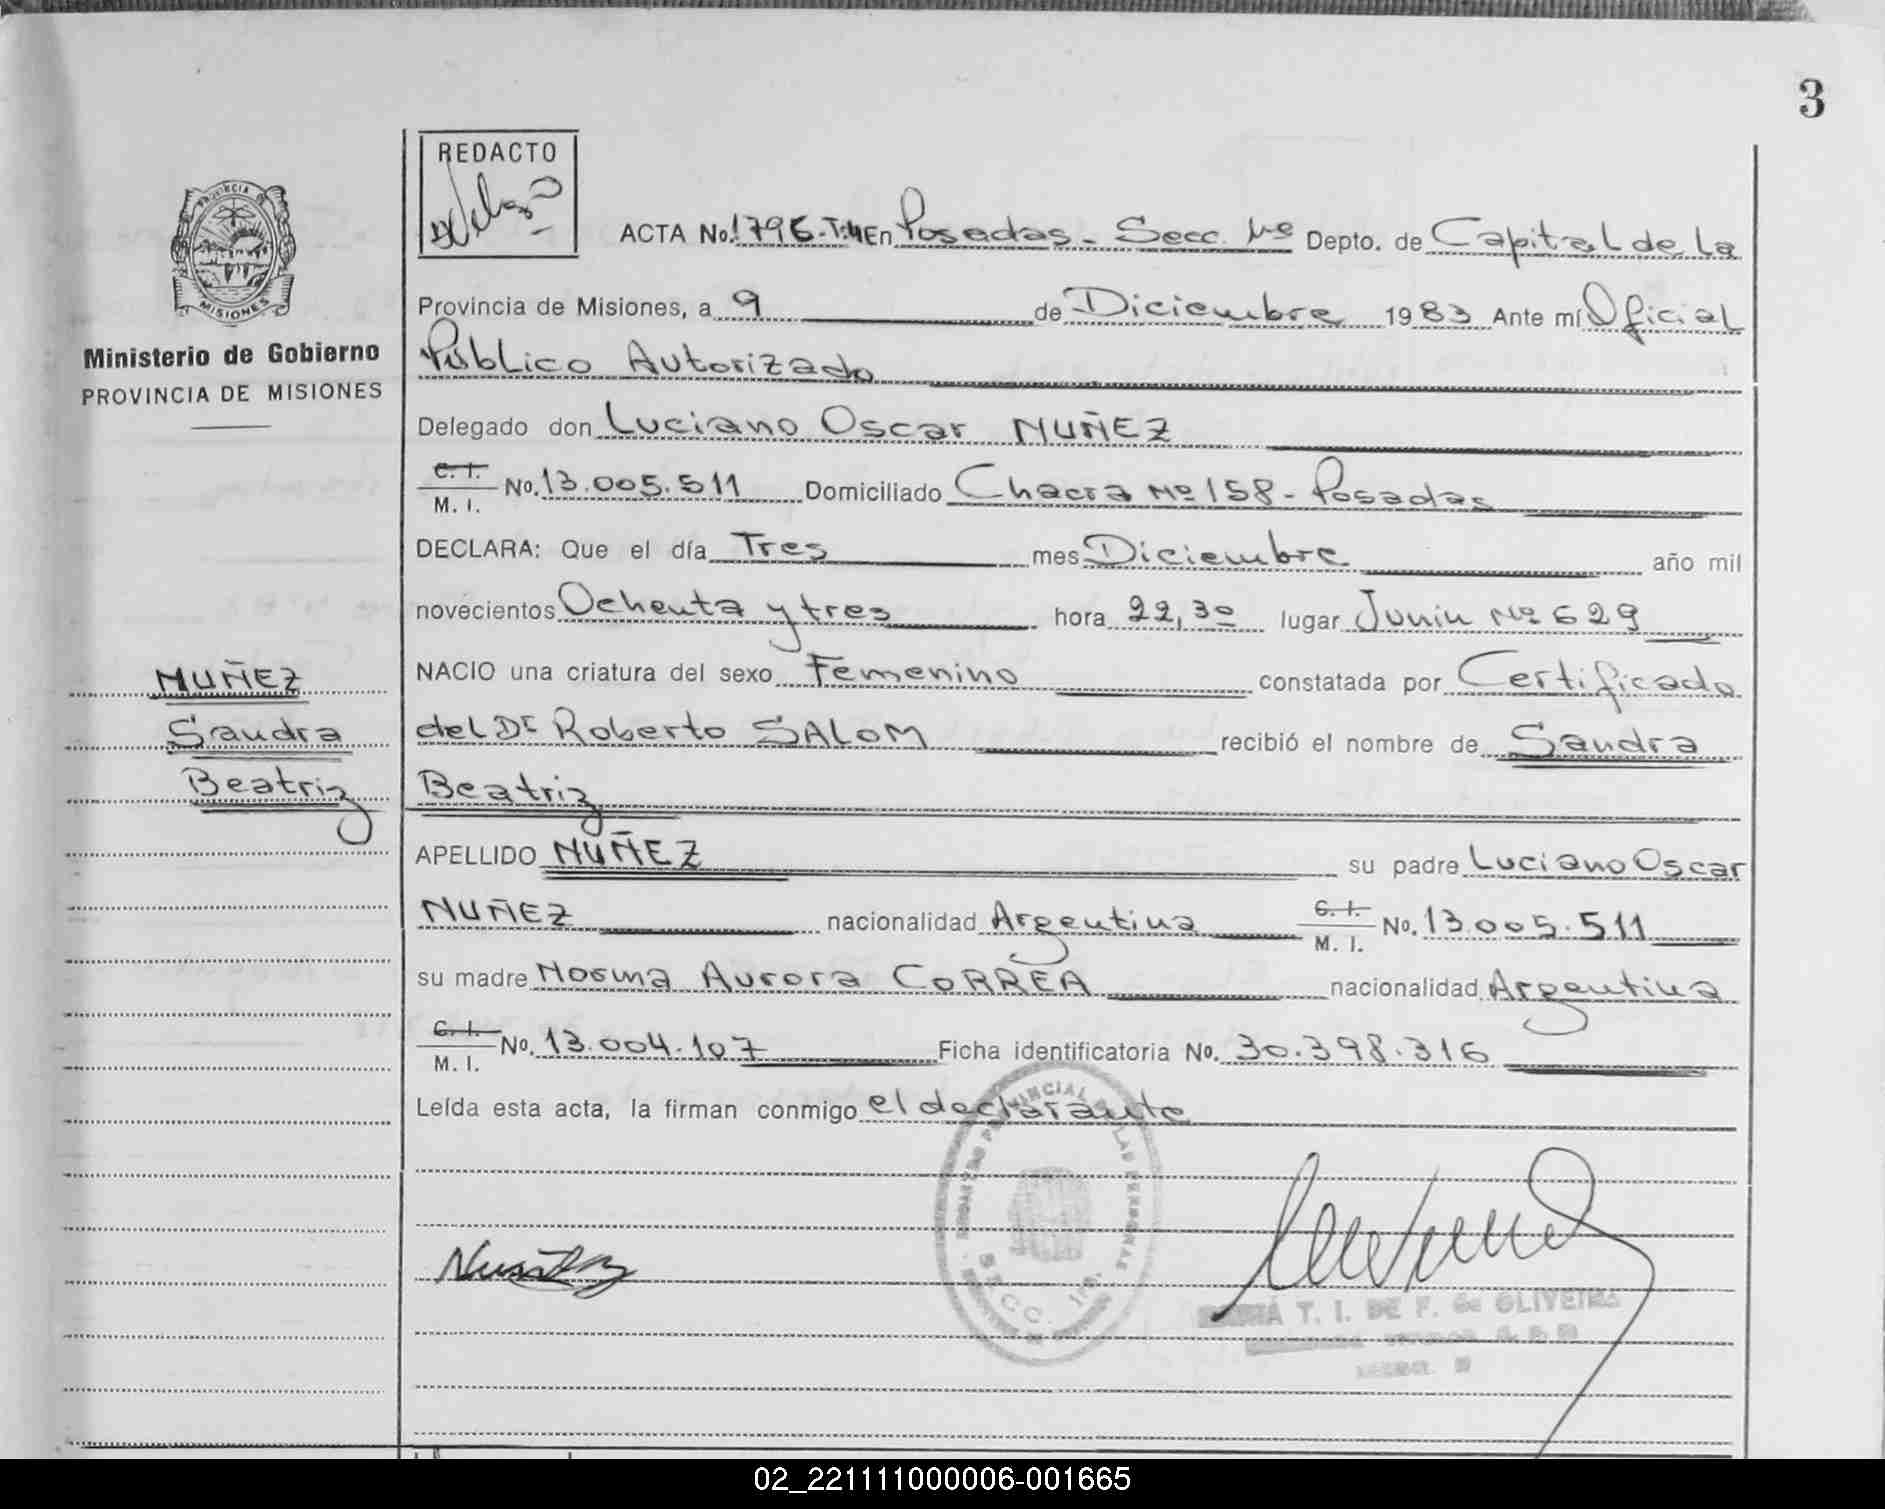 3
REDACTO
PROVINCIA
MISIONES
Ministerio de Gobierno
PROVINCIA DE MISIONES
ACTA No. 1796-T:4 En Posadas - Secc. 1º Depto. de Capital de La
Provincia de Misiones, a 9 de Diciembre 1983 Ante mí Oficial
Público Autorizado
Delegado don Luciano Oscar NUÑEZ
C. I. / M. I. No. 13.005.511 Domiciliado Chacra Nº 158 - Posadas
DECLARA: Que el día Tres mes Diciembre año mil
novecientos Ochenta y tres hora 22,30 lugar Junin Nº 629
NACIO una criatura del sexo Femenino constatada por Certificado
del Dr Roberto SALOM recibió el nombre de Sandra
Beatriz
APELLIDO NUÑEZ su padre Luciano Oscar
NUÑEZ nacionalidad Argentina C. I. / M. I. No. 13.005.511
su madre Norma Aurora CORREA nacionalidad Argentina
C. I. / M. I. No. 13.004.107 Ficha identificatoria No. 30.398.316
Leída esta acta, la firman conmigo el declarante
NUÑEZ
Sandra
Beatriz
PROVINCIAL DE LAS PERSONAS
SECC. 1ra.
T. I. DE F. de OLIVEIRA
02_221111000006-001665